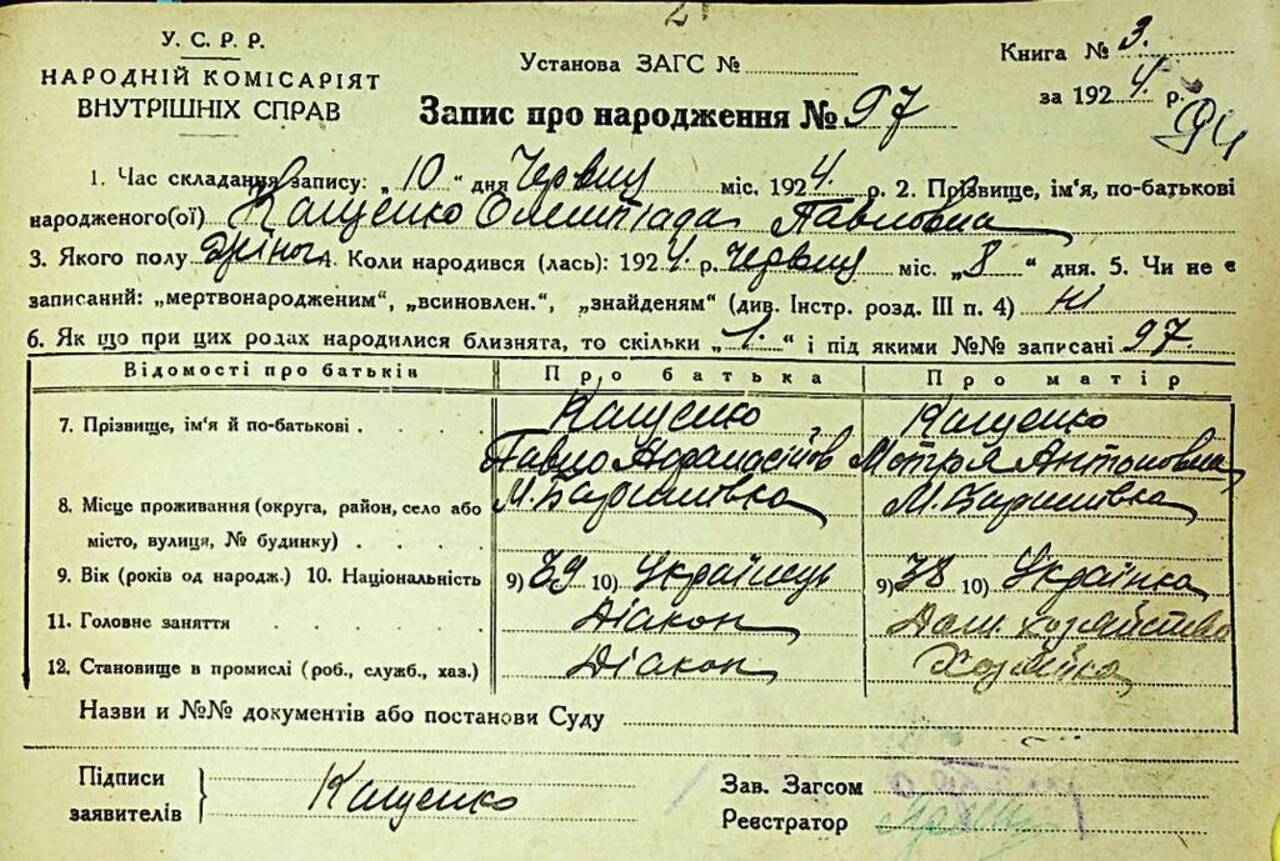 У. С. Р. Р.
НАРОДНІЙ КОМІСАРІЯТ
ВНУТРІШНІХ СПРАВ
Установа ЗАГС №
Книга № 3.
за 1924 р.
94
Запис про народження № 97
1. Час складання запису: „10“ дня Червця міс. 1924 р. 2. Прізвище, ім'я, по-батькові
народженого(ої) Кащенко Олимпіада Павловна
3. Якого полу жіноч. 4. Коли народився (лась): 1924 р. Червця міс. „8“ дня. 5. Чи не є
записаний: „мертвонародженим“, „всиновлен.“, „знайденям“ (див. Інстр. розд. III п. 4) Ні
6. Як що при цих родах народилися близнята, то скільки „1.“ і під якими №№ записані 97.
Відомості про батьків Про батька Про матір
7. Прізвище, ім'я й по-батькові . . . . Кащенко Кащенко
Павло Афанасіїов Мотря Антоновна
8. Місце проживания (округа, район, село або М. Баришівка М. Баришівка
місто, вулиця, № будинку) . . . .
9. Вік (років од народж.) 10. Національність 9) 39 10) Українець 9) 38 10) Українка
11. Головне заняття . . . . . Діакон Дом. хозяйство
12. Становище в промислі (роб., служб., хаз.) Діакон Хозяйка
Назви и №№ документів або постанови Суду
Підписи
заявителів
Кащенко
Зав. Загсом
Реєстратор